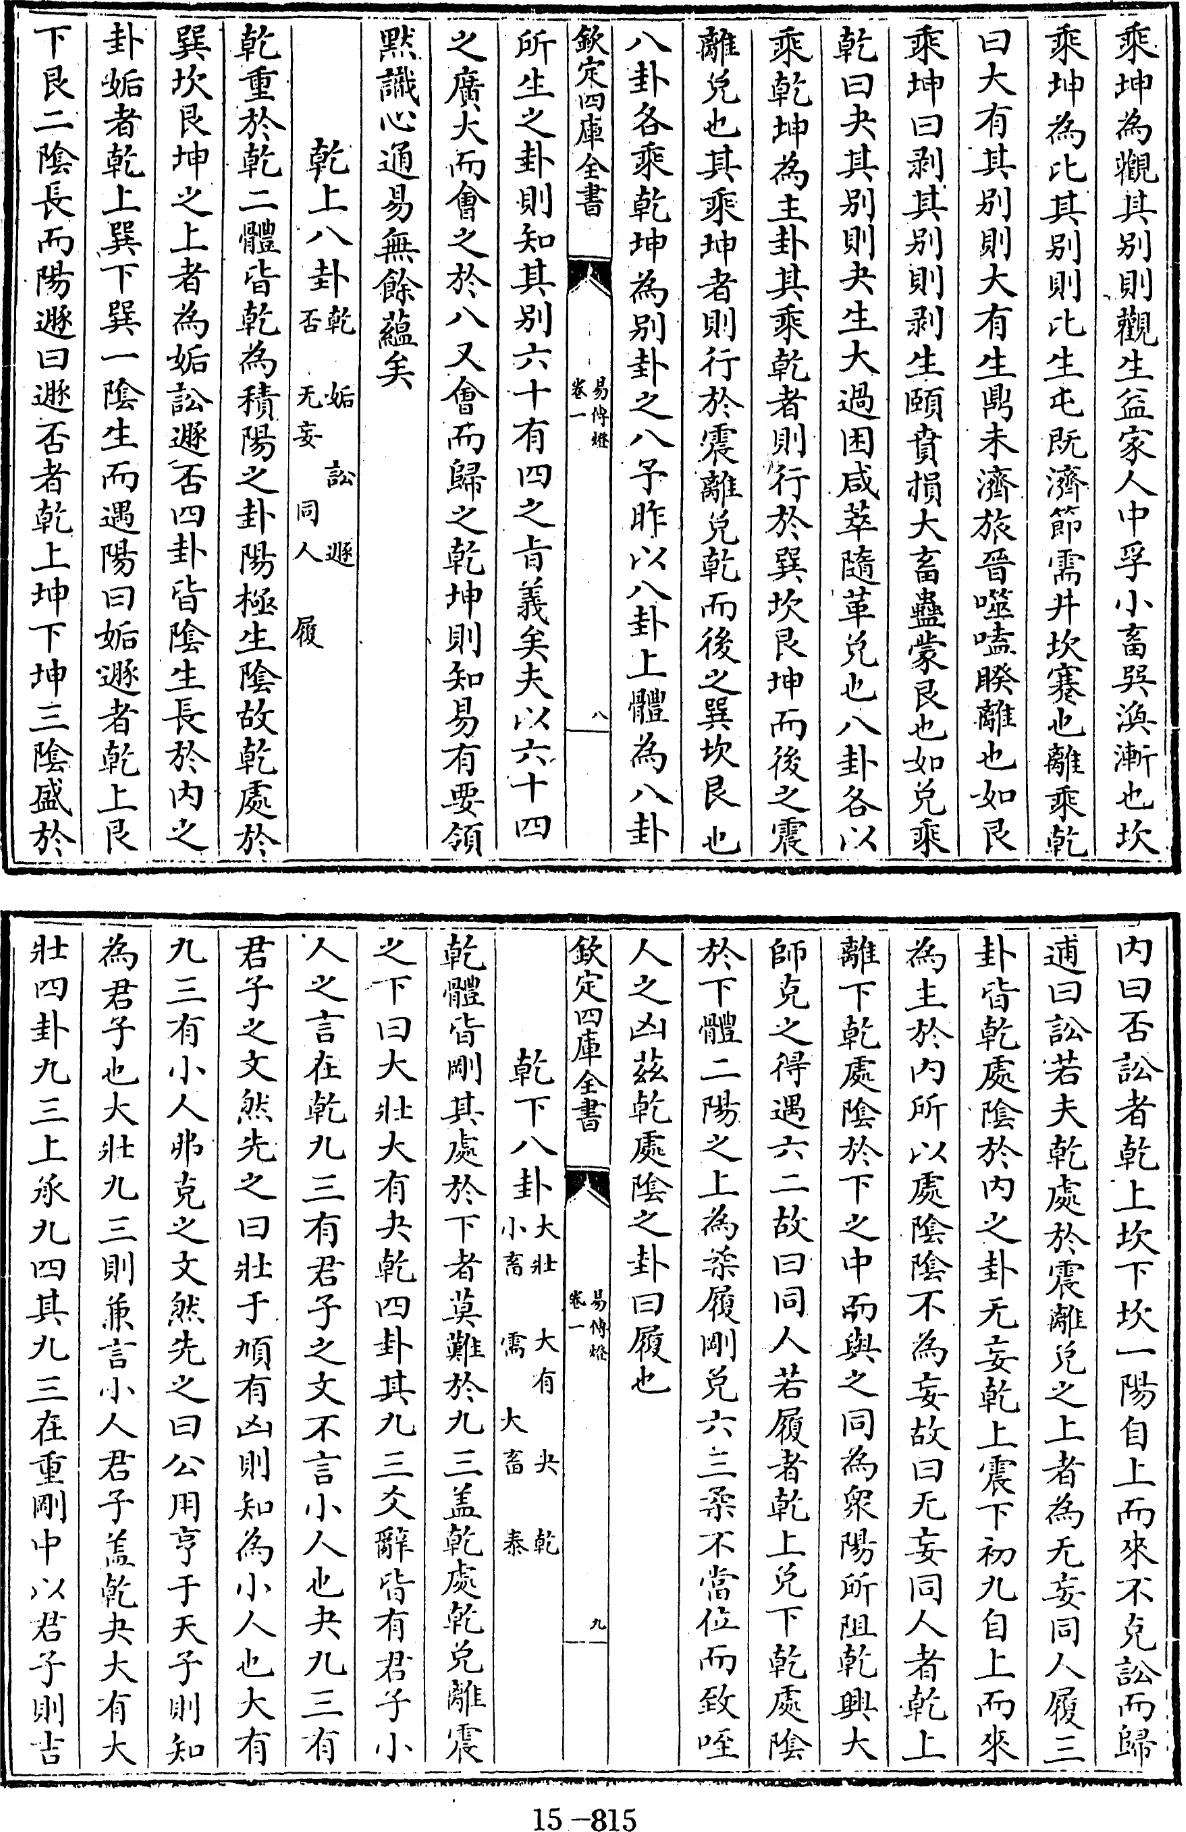 乘坤為觀其别則觀生益家人中孚小畜巽渙漸也坎
乘坤為比其别則比生屯既濟節需井坎蹇也離乘乾
曰大有其别則大有生鼎未濟旅晉噬嗑睽離也如艮
乘坤曰剥其别則剥生頤賁損大畜蠱蒙艮也如兌乘
乾曰夬其别則夬生大過困咸萃隨革兌也八卦各以
乘乾坤為主卦其乘乾者則行於巽坎艮坤而後之震
離兌也其乘坤者則行於震離兌乾而後之巽坎艮也
八卦各乘乾坤為别卦之八子昨以八卦上體為八卦
欽定四庫全書
易傳燈
卷一
八
所生之卦則知其别六十有四之旨義矣夫以六十四
之廣大而會之於八又會而歸之乾坤則知易有要領
黙識心通易無餘蘊矣
乾上八卦乾 姤 訟 遯
否 无妄 同人 履
乾重於乾二體皆乾為積陽之卦陽極生陰故乾處於
巽坎艮坤之上者為姤訟遯否四卦皆陰生長於内之
卦姤者乾上巽下巽一陰生而遇陽曰姤遯者乾上艮
下艮二陰長而陽遯曰遯否者乾上坤下坤三陰盛於
内曰否訟者乾上坎下坎一陽自上而來不克訟而歸
逋曰訟若夫乾處於震離兌之上者為无妄同人履三
卦皆乾處陰於内之卦无妄乾上震下初九自上而來
為主於内所以處陰陰不為妄故曰无妄同人者乾上
離下乾處陰於下之中而與之同為衆陽所阻乾興大
師克之得遇六二故曰同人若履者乾上兌下乾處陰
於下體二陽之上為柔履剛兌六三柔不當位而致咥
人之凶兹乾處陰之卦曰履也
欽定四庫全書
易傳燈
卷一
九
乾下八卦大壯 大有 夬 乾
小畜 需 大畜 泰
乾體皆剛其處於下者莫難於九三盖乾處乾兌離震
之下曰大壯大有夬乾四卦其九三爻辭皆有君子小
人之言在乾九三有君子之文不言小人也夬九三有
君子之文然先之曰壯于頄有凶則知為小人也大有
九三有小人弗克之文然先之曰公用亨于天子則知
為君子也大壯九三則兼言小人君子盖乾夬大有大
壯四卦九三上承九四其九三在重剛中以君子則吉
15-815